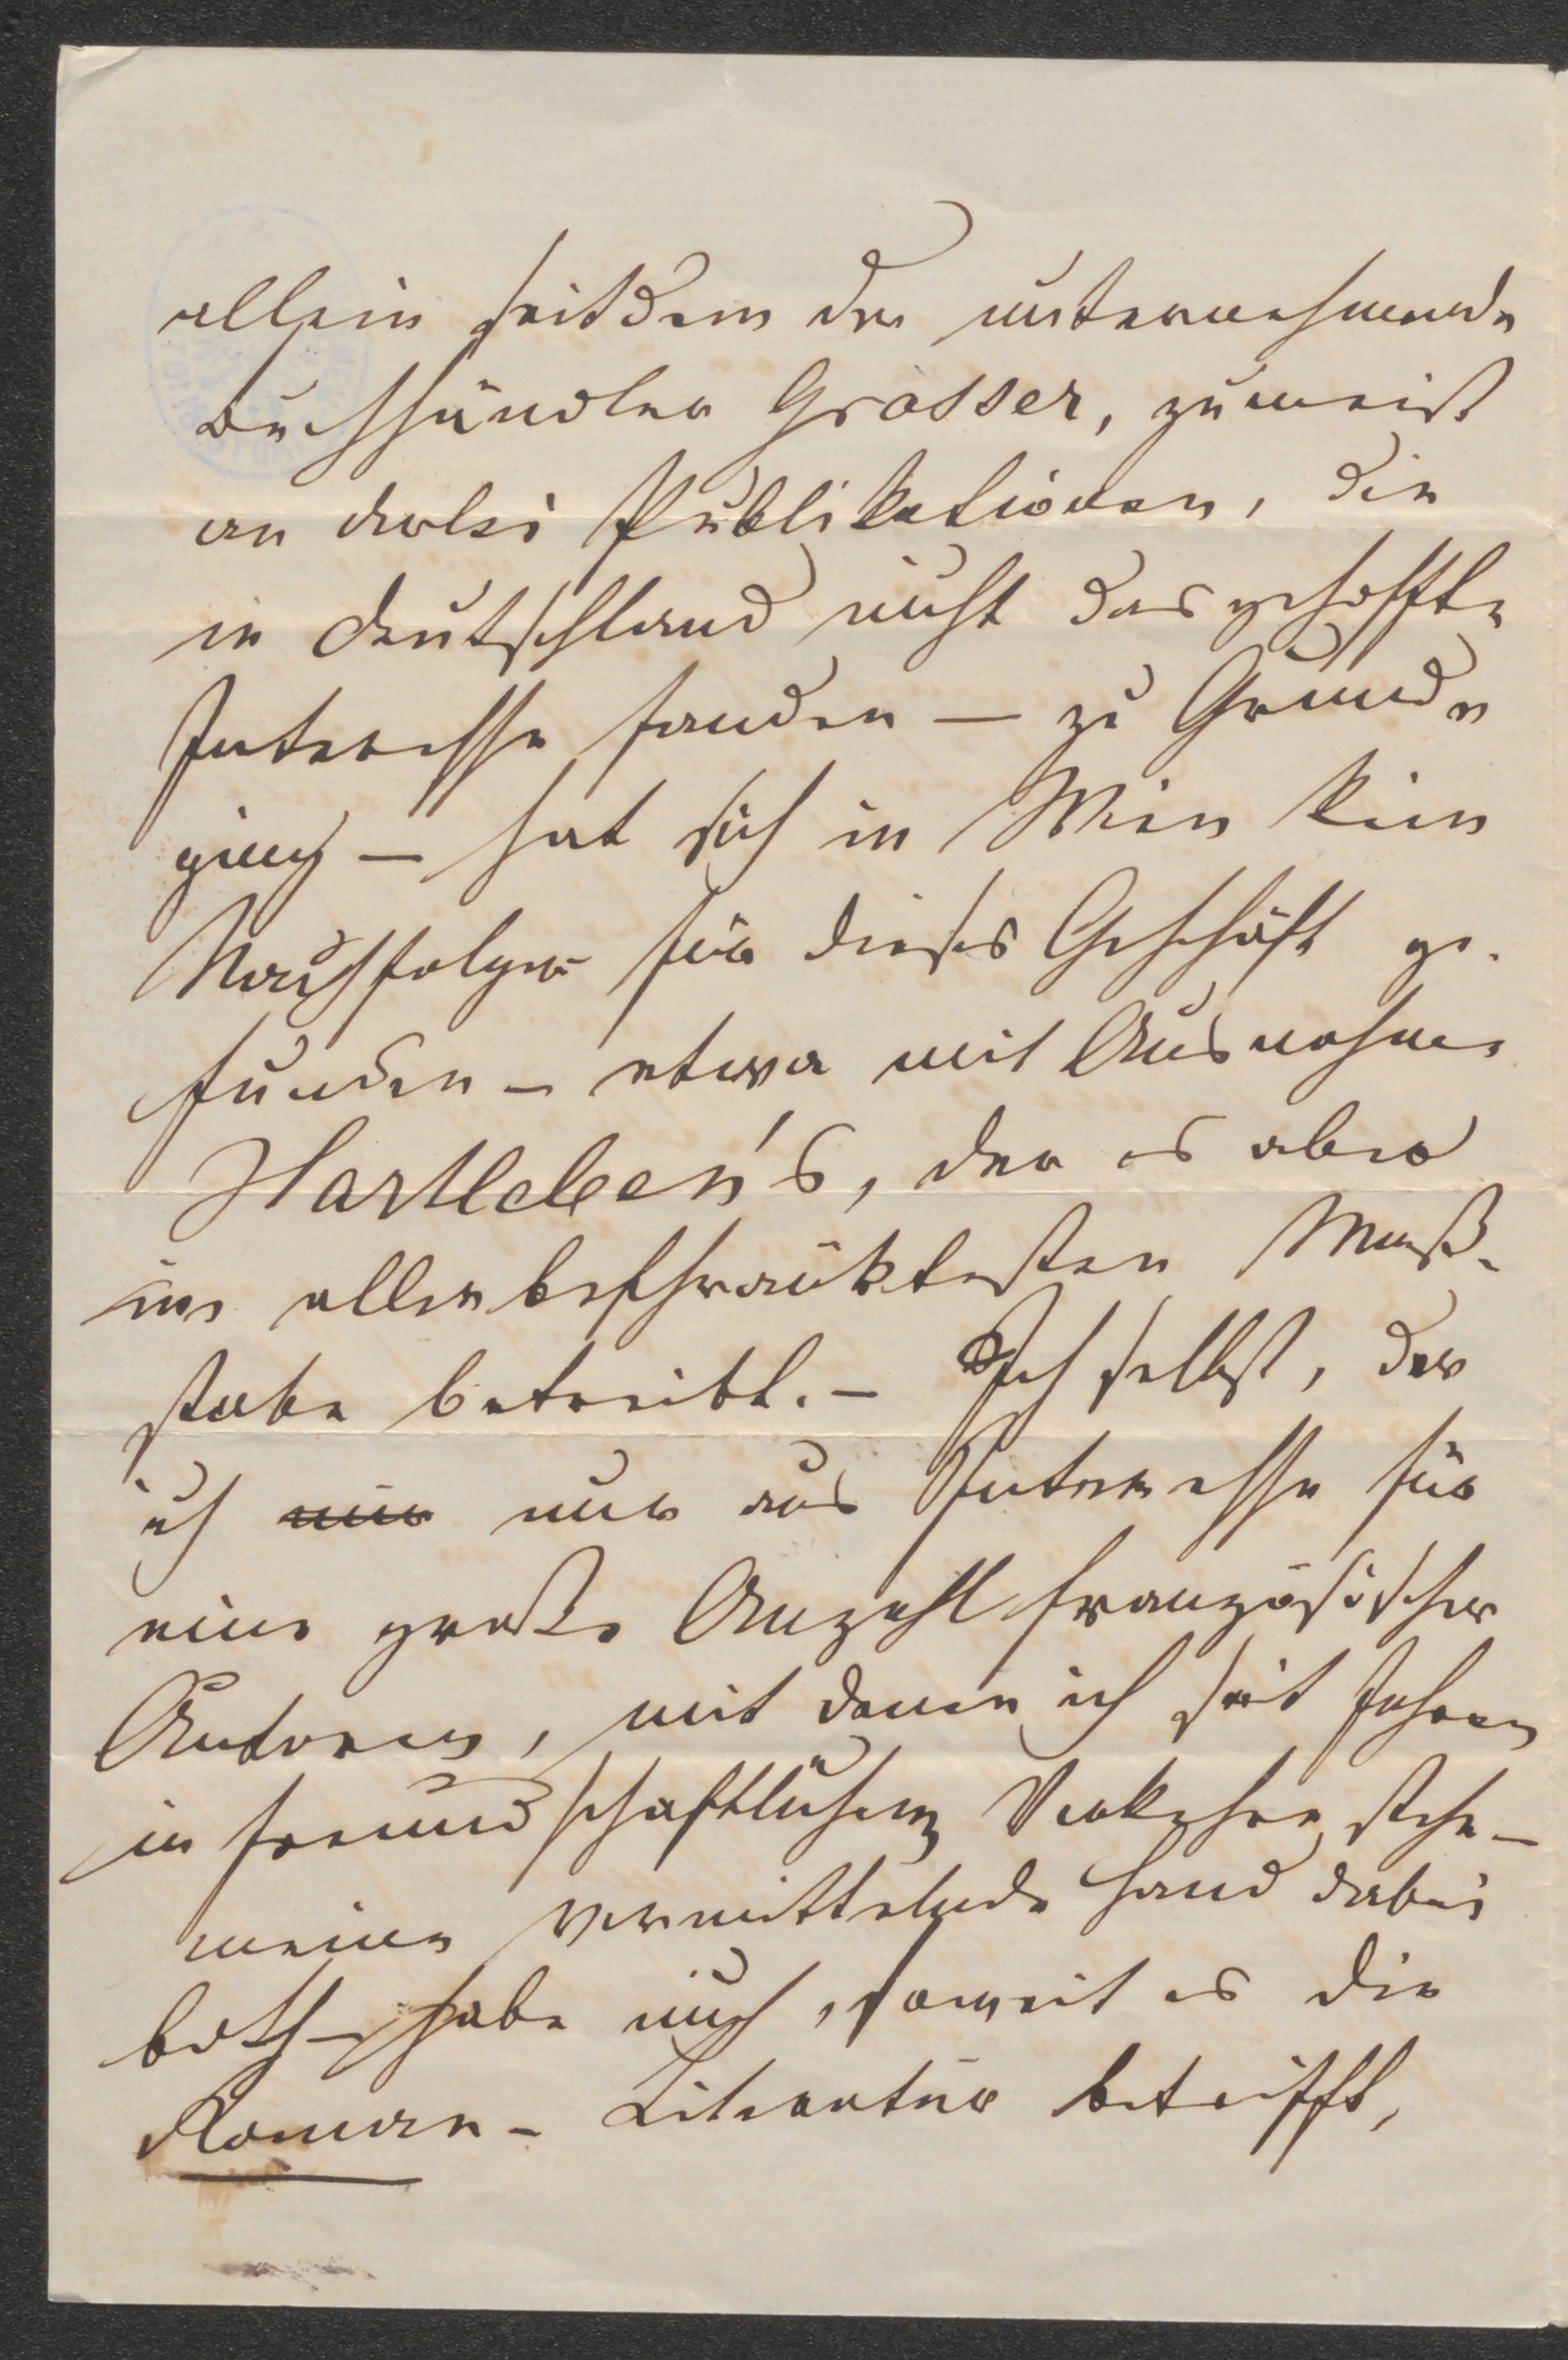 allein seitdem der unternehmende
Buchhändler Grosser, zumeist
an derlei Publikationen, die
in Deutschland nicht das gehoffte
Interesse fanden — zu Grunde
ging — hat sich in Wien kein
Nachfolger für dieses Geschäft ge-
funden — etwa mit Ausnahme
Hartleben's, der es aber
im allerbeschränktesten Maß-
stabe betreibt. — Ich selbst, der
ich nur nur aus Interesse für
eine große Anzahl französischer
Autoren, mit denen ich seit Jahren
in freundschaftlichem Verkehre stehe —
meine vermittelnde Hand dabei
both — habe mich, soweit es die
Roman-Literatur betrifft,